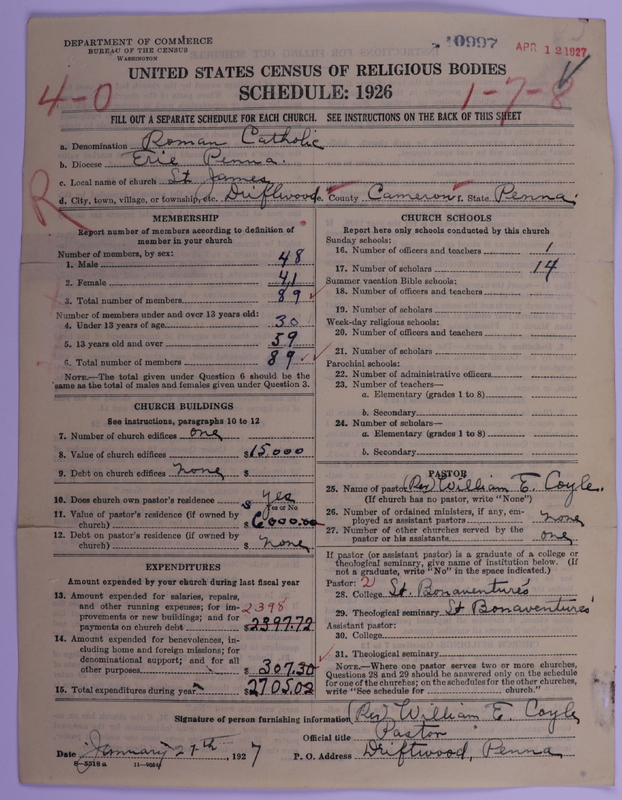 DEPARTMENT OF COMMERCE
BUREAU OF THE CENSUS
WASHINGTON
10997
APR 12 1927
UNITED STATES CENSUS OF RELIGIOUS BODIES
SCHEDULE: 1926
4-0
1-7-8
FILL OUT A SEPARATE SCHEDULE FOR EACH CHURCH. SEE INSTRUCTIONS ON THE BACK OF THIS SHEET
a. Denomination Roman Catholic
b. Diocese Erie Penna.
c. Local name of church St. James
d. City, town, village, or township, etc. Driftwood e. County Cameron f. State Penna.
R
MEMBERSHIP
Report number of members according to definition of
member in your church
Number of members, by sex:
1. Male 48
2. Female 41
3. Total number of members 89
Number of members under and over 13 years old:
4. Under 13 years of age 30
5. 13 years old and over 59
6. Total number of members 89
NOTE.—The total given under Question 6 should be the
same as the total of males and females given under Question 3.
CHURCH BUILDINGS
See instructions, paragraphs 10 to 12
7. Number of church edifices one
8. Value of church edifices $15,000
9. Debt on church edifices None $
10. Does church own pastor's residence yes
Yes or No
11. Value of pastor's residence (if owned by
church) $6000.00
12. Debt on pastor's residence (if owned by
church) $ None
EXPENDITURES
Amount expended by your church during last fiscal year
13. Amount expended for salaries, repairs,
and other running expenses; for im- 2398
provements or new buildings; and for
payments on church debt $2397.72
14. Amount expended for benevolences, in-
cluding home and foreign missions; for
denominational support; and for all
other purposes $307.30
15. Total expenditures during year $2705.02
CHURCH SCHOOLS
Report here only schools conducted by this church
Sunday schools:
16. Number of officers and teachers 1
17. Number of scholars 14
Summer vacation Bible schools:
18. Number of officers and teachers
19. Number of scholars
Week-day religious schools:
20. Number of officers and teachers
21. Number of scholars
Parochial schools:
22. Number of administrative officers
23. Number of teachers—
a. Elementary (grades 1 to 8)
b. Secondary
24. Number of scholars—
a. Elementary (grades 1 to 8)
b. Secondary
PASTOR
25. Name of pastor (Rev) William E. Coyle.
(If church has no pastor, write "None")
26. Number of ordained ministers, if any, em-
ployed as assistant pastors none
27. Number of other churches served by the
pastor or his assistants one
If pastor (or assistant pastor) is a graduate of a college or
theological seminary, give name of institution below. (If
not a graduate, write "No" in the space indicated.)
Pastor: 2
28. College St. Bonaventures
29. Theological seminary St Bonaventures
Assistant pastor:
30. College
31. Theological seminary
NOTE.—Where one pastor serves two or more churches,
Questions 28 and 29 should be answered only on the schedule
for one of the churches; on the schedules for the other churches,
write "See schedule for church."
Signature of person furnishing information (Rev) William E. Coyle
Official title Pastor
Date January 27th, 1927 P. O. Address Driftwood, Penna
8-5518a 11-9051